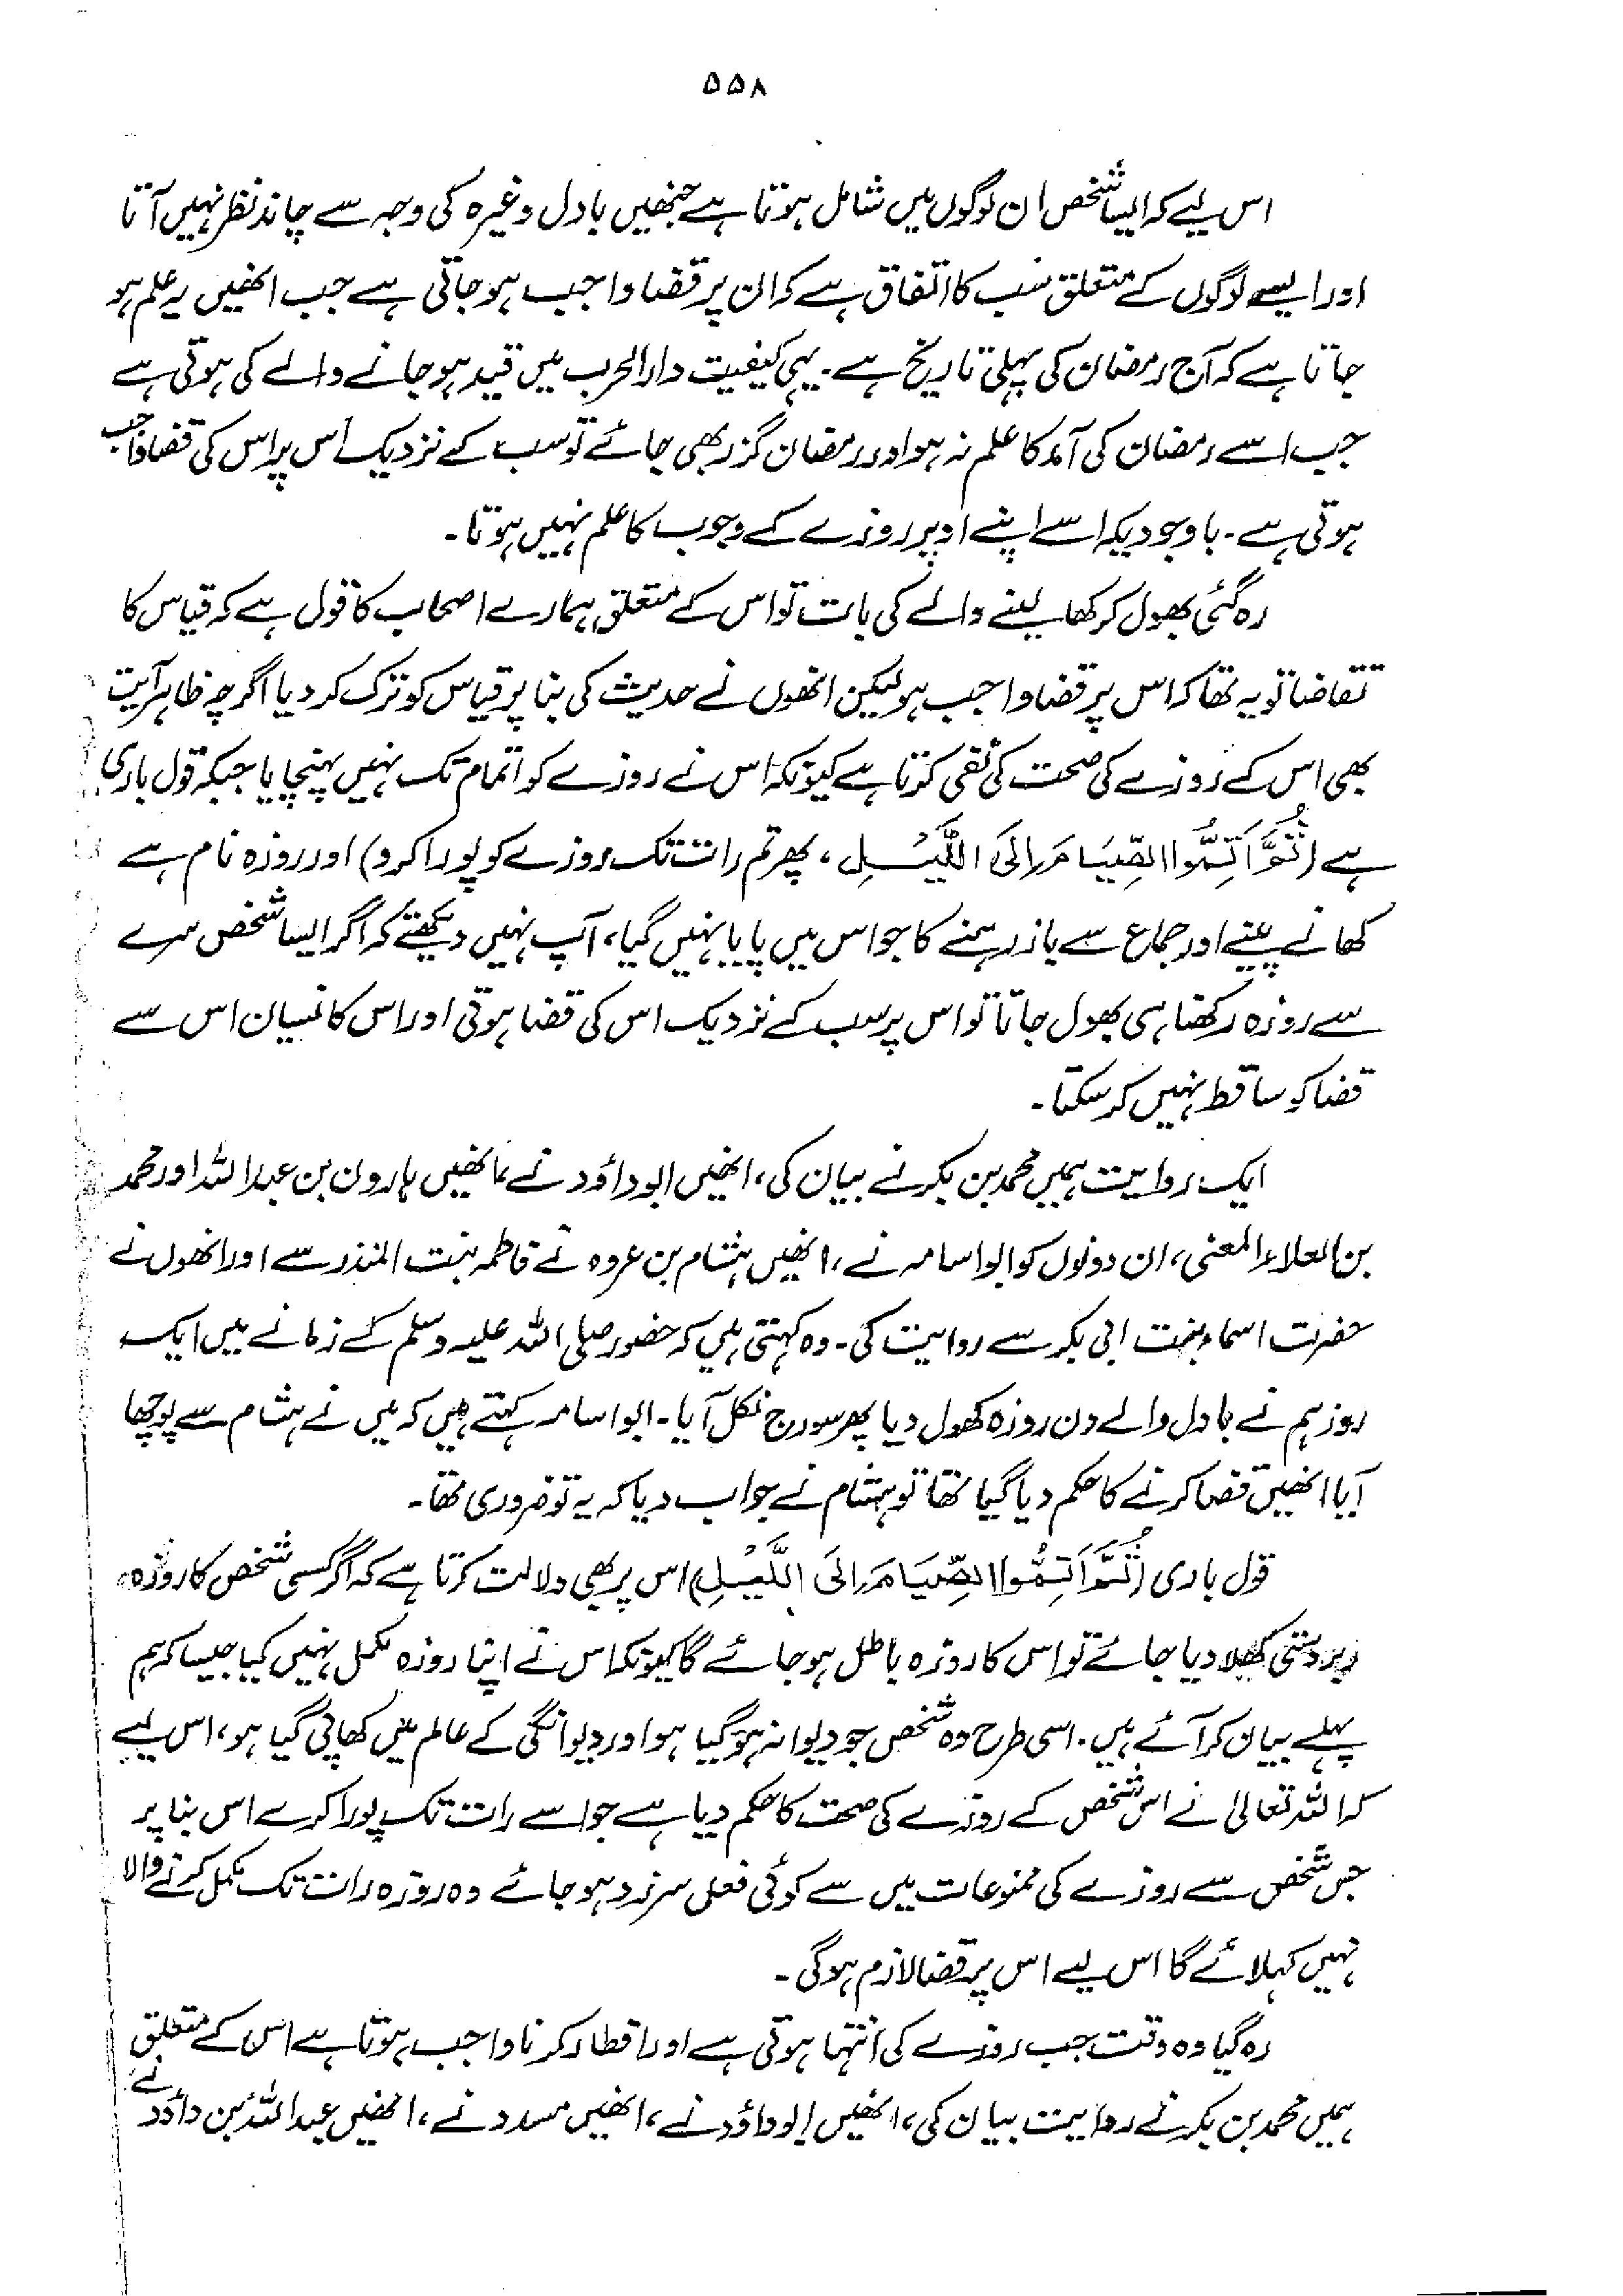 ۵۵۸
اس لیے کہ ایسا شخص ان لوگوں میں شامل ہوتا ہے جنھیں بادل وغیرہ کی وجہ سے چاند نظر نہیں آتا
اور ایسے لوگوں کے متعلق سب کا اتفاق ہے کہ ان پر قضا واجب ہو جاتی ہے جب انھیں یہ علم ہو
جاتا ہے کہ آج رمضان کی پہلی تاریخ ہے۔ یہی کیفیت دارالحرب میں قید ہو جانے والے کی ہوتی ہے
جب اسے رمضان کی آمد کا علم نہ ہو اور رمضان گزر بھی جائے تو سب کے نزدیک اس پر اس کی قضا واجب
ہوتی ہے۔ باوجودیکہ اسے اپنے اوپر روزے کے وجوب کا علم نہیں ہوتا۔
رہ گئی بھول کر کھا لینے والے کی بات تو اس کے متعلق ہمارے اصحاب کا قول ہے کہ قیاس کا
تقاضا تو یہ تھا کہ اس پر قضا واجب ہو لیکن انھوں نے حدیث کی بنا پر قیاس کو ترک کر دیا اگرچہ ظاہر آیت
بھی اس کے روزے کی صحت کی نفی کرتا ہے کیونکہ اس نے روزے کو اتمام تک نہیں پہنچایا جبکہ قول باری
ہے (ثُمَّ اَتِمُّوا الصِّیَامَ اِلَی اللَّیْلِ، پھر تم رات تک روزے کو پورا کرو) اور روزہ نام ہے
کھانے پینے اور جماع سے باز رہنے کا جو اس میں پایا نہیں گیا، آپ نہیں دیکھتے کہ اگر ایسا شخص سرے
سے روزہ رکھنا ہی بھول جاتا تو اس پر سب کے نزدیک اس کی قضا ہوتی اور اس کا نسیان اس سے
قضا کو ساقط نہیں کر سکتا۔
ایک روایت ہمیں محمد بن بکر نے بیان کی، انھیں ابو داؤد نے، انھیں ہارون بن عبداللہ اور محمد
بن العلاء المعنی، ان دونوں کو ابو اسامہ نے، انھیں ہشام بن عروہ نے فاطمہ بنت المنذر سے اور انھوں نے
حضرت اسماء بنت ابی بکر سے روایت کی۔ وہ کہتی ہیں کہ حضور صلی اللہ علیہ وسلم کے زمانے میں ایک
روز ہم نے بادل والے دن روزہ کھول دیا پھر سورج نکل آیا۔ ابو اسامہ کہتے ہیں کہ میں نے ہشام سے پوچھا
آیا انھیں قضا کرنے کا حکم دیا گیا تھا تو ہشام نے جواب دیا کہ یہ تو ضروری تھا۔
قول باری (ثُمَّ اَتِمُّوا الصِّیَامَ اِلَی اللَّیْلِ) اس پر بھی دلالت کرتا ہے کہ اگر کسی شخص کا روزہ
زبردستی کھلا دیا جائے تو اس کا روزہ باطل ہو جائے گا کیونکہ اس نے اپنا روزہ مکمل نہیں کیا جیسا کہ ہم
پہلے بیان کر آئے ہیں۔ اسی طرح وہ شخص جو دیوانہ ہو گیا ہو اور دیوانگی کے عالم میں کھا پی گیا ہو، اس لیے
کہ اللہ تعالیٰ نے اس شخص کے روزے کی صحت کا حکم دیا ہے جو اسے رات تک پورا کرے اس بنا پر
جس شخص سے روزے کی ممنوعات میں سے کوئی فعل سرزد ہو جائے وہ روزہ رات تک مکمل کرنے والا
نہیں کہلائے گا اس لیے اس پر قضا لازم ہوگی۔
رہ گیا وہ وقت جب روزے کی انتہا ہوتی ہے اور افطار کرنا واجب ہوتا ہے اس کے متعلق
ہمیں محمد بن بکر نے روایت بیان کی، انھیں ابو داؤد نے، انھیں مسدد نے، انھیں عبداللہ بن داؤد نے